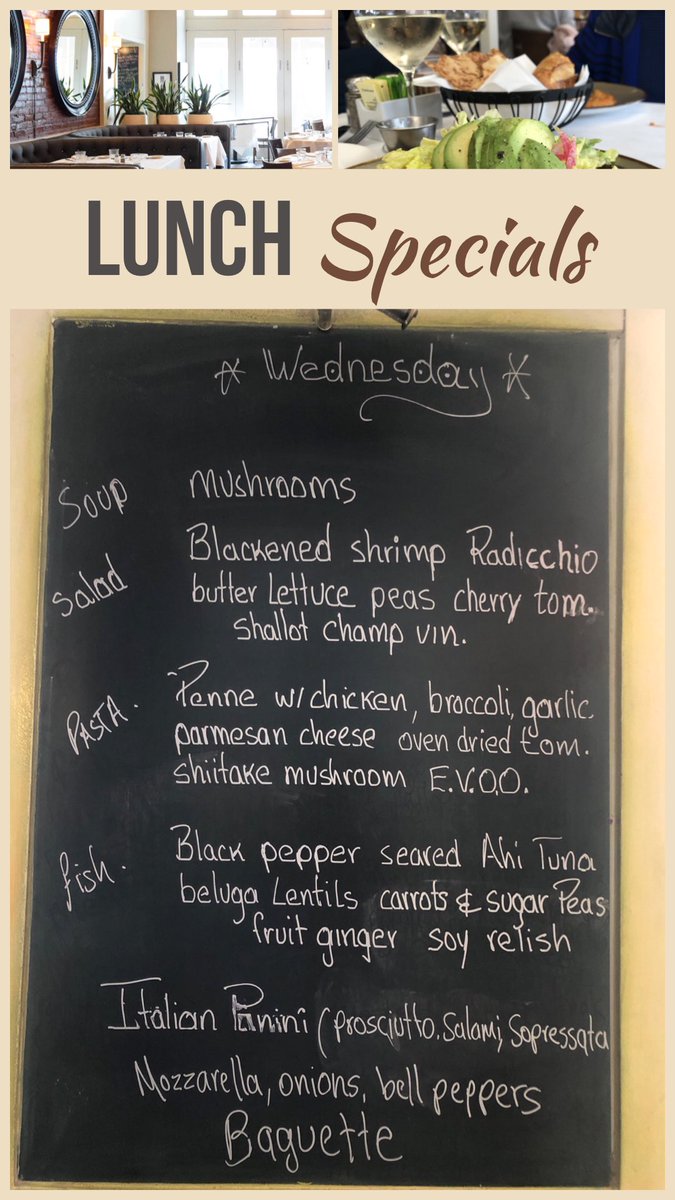 LUNCH Specials
* Wednesday *
Soup mushrooms
Salad Blackened shrimp Radicchio
butter Lettuce peas cherry tom.
shallot champ vin.
PASTA. Penne w/chicken, broccoli, garlic.
parmesan cheese oven dried tom.
shiitake mushroom E.V.O.O.
fish. Black pepper seared Ahi Tuna
beluga Lentils carrots & sugar Peas
fruit ginger soy relish
Italian Panini (prosciutto, Salami, Sopressata
Mozzarella, onions, bell peppers
Baguette